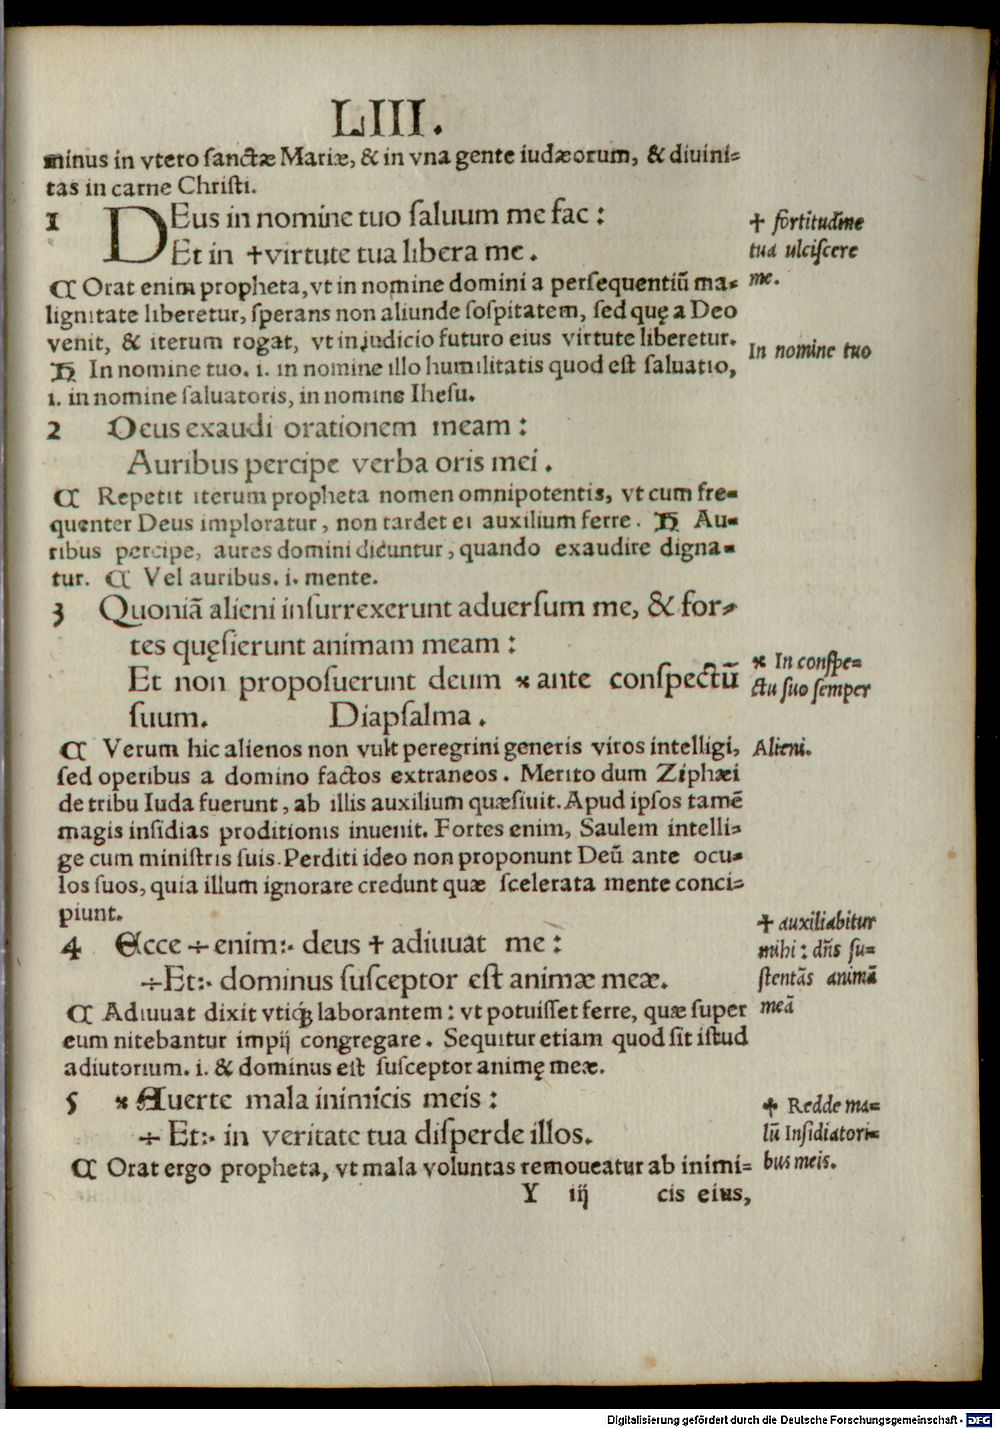 LIII.
minus in vtero ſanctæ Mariæ, & in vna gente iudæorum, & diuini⸗
tas in carne Chriſti.
1 DEus in nomine tuo ſaluum me fac :
Et in ✝virtute tua libera me .
✝ fortitudine
tua ulciſcere
me.
⁋ Orat enim propheta, vt in nomine domini a perſequentiũ ma⸗
lignitate liberetur, ſperans non aliunde ſoſpitatem, ſed quę a Deo
venit, & iterum rogat, vt in judicio futuro eius virtute liberetur.
In nomine tuo
Ħ In nomine tuo. i. in nomine illo humilitatis quod eſt ſaluatio,
i. in nomine ſaluatoris, in nomine Iheſu.
2 Deus exaudi orationem meam :
Auribus percipe verba oris mei .
⁋ Repetit iterum propheta nomen omnipotentis, vt cum fre⸗
quenter Deus imploratur, non tardet ei auxilium ferre. Ħ Au⸗
ribus percipe, aures domini dicuntur, quando exaudire digna⸗
tur. ⁋ Vel auribus. i. mente.
3 Quoniã alieni inſurrexerunt aduerſum me, & for⸗
tes quęſierunt animam meam :
Et non propoſuerunt deum ※ ante conſpectũ
ſuum. Diapſalma .
※ In conſpe⸗
ctu ſuo ſemper
⁋ Verum hic alienos non vult peregrini generis viros intelligi,
Alieni.
ſed operibus a domino factos extraneos. Merito dum Ziphæi
de tribu Iuda fuerunt, ab illis auxilium quæſiuit. Apud ipſos tamẽ
magis inſidias proditionis inuenit. Fortes enim, Saulem intelli⸗
ge cum miniſtris ſuis. Perditi ideo non proponunt Deũ ante ocu⸗
los ſuos, quia illum ignorare credunt quæ ſcelerata mente conci⸗
piunt.
4 Ecce ÷ enim:· deus ✝ adiuuat me :
÷Et:· dominus ſuſceptor eſt animæ meæ.
✝ auxiliabitur
mihi : dñs ſu⸗
ſtentãs animã
meã
⁋ Adiuuat dixit vtiqꝫ laborantem : vt potuiſſet ferre, quæ ſuper
eum nitebantur impij congregare. Sequitur etiam quod ſit iſtud
adiutorium. i. & dominus eſt ſuſceptor animę meæ.
5 ※ Auerte mala inimicis meis :
÷ Et:· in veritate tua diſperde illos.
✝ Redde ma⸗
lũ Inſidiatori⸗
bus meis.
⁋ Orat ergo propheta, vt mala voluntas remoueatur ab inimi⸗
Y iij cis eius,
Digitalisierung gefördert durch die Deutsche Forschungsgemeinschaft - DFG